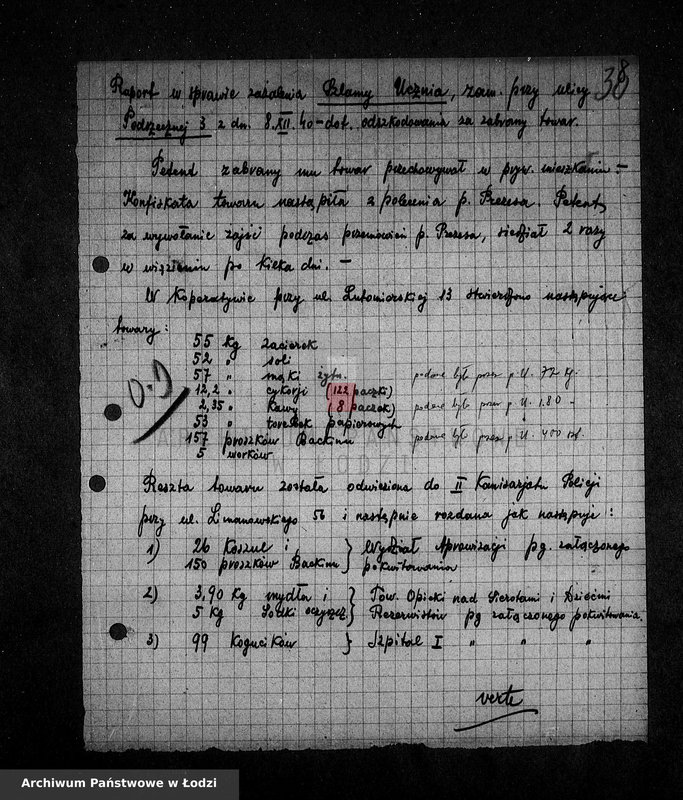 38
Raport w sprawie zażalenia Szlamy Ucznia, zam. przy ulicy
Podrzecznej 3 z dn. 8.XII.40 - dot. odszkodowania za zabrany towar.
Petent zabrany mu towar przechowywał w pryw. mieszkaniu. -
Konfiskata towaru nastąpiła z polecenia p. Prezesa. Petent,
za wywołanie zajść podczas przemówień p. Prezesa, siedział 2 razy
w więzieniu po kilka dni. -
W Koperatywie przy ul. Lutomierskiej 13 stwierdzono następujące
towary:
55 kg zacierek
52 " soli
57 " mąki żytn. podane był przez p U. 72 kg.
12,2 " cykorji (122 paczki)
2,35 " kawy (8 paczek) podane był przez p U. 1.80 -
53 " torebek papierowych
157 proszków Backinu podane był przez p U. 400
5 worków
O.D
Reszta towaru została odwieziona do II Komisarjatu Policji
przy ul. Limanowskiego 56 i następnie rozdana jak następuje:
1) 26 Koszul i } Wydział Aprowizacji pg. załączonego
150 proszków Backinu pokwitowania
2) 3,90 kg mydła i } Tow. Opieki nad Sierotami i Dziećmi
5 kg Sodki oczyszcz. Rezerwistów pg załączonego pokwitowania.
3) 99 Kogucików } Szpital I " " "
verte
Archiwum Państwowe w Łodzi